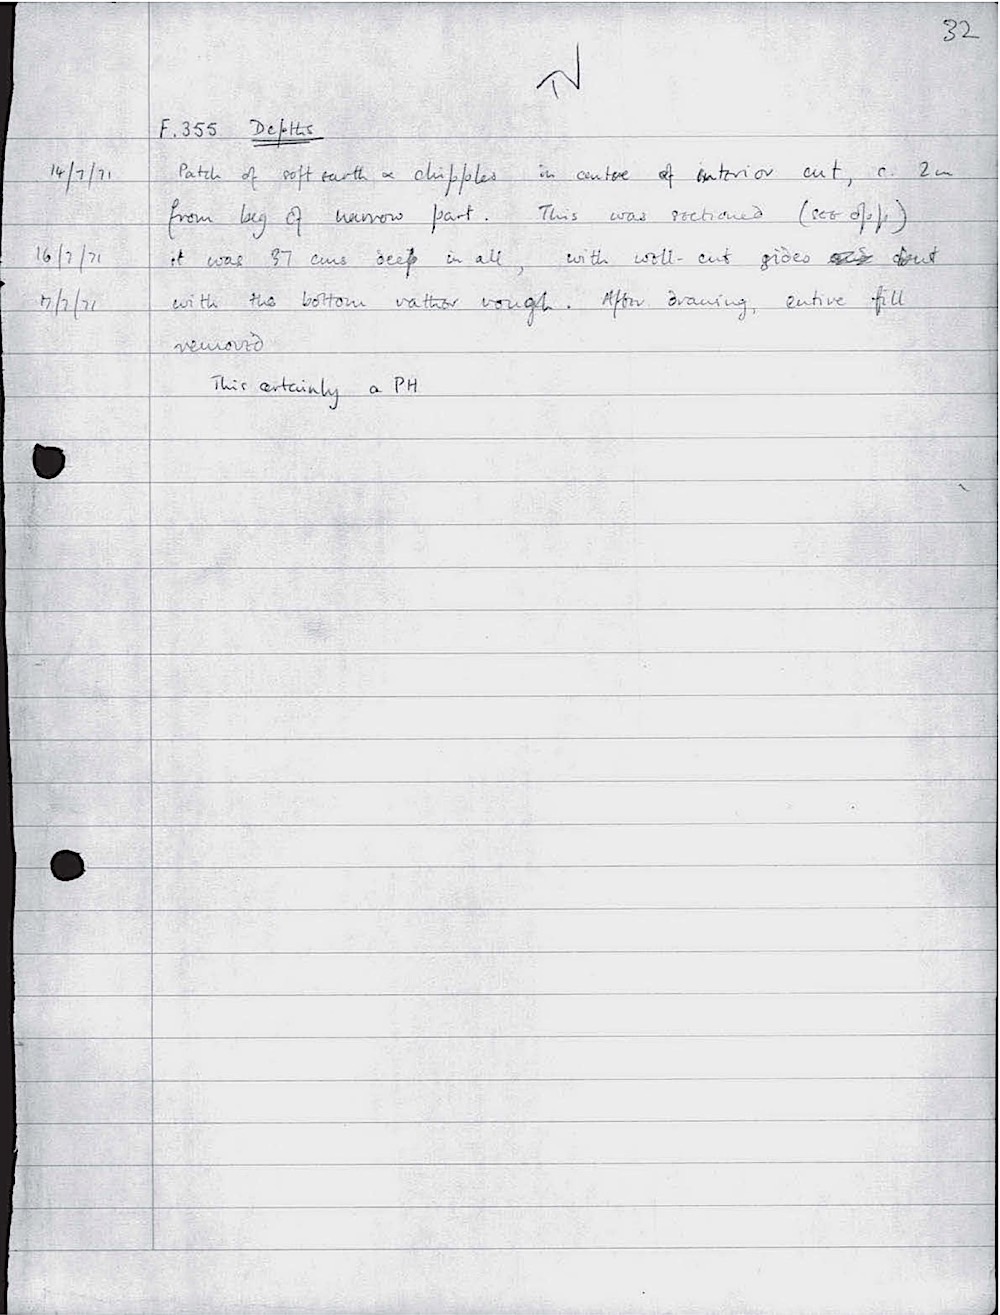 32
F.355 Depths
14/7/71 Patch of soft earth & chipples in centre of interior cut, c. 2m
from beg of narrow part. This was sectioned (see opp)
16/7/71 it was 37 cms deep in all, with well-cut sides but
17/7/71 with the bottom rather rough. After drawing, entire fill
removed
This certainly a PH